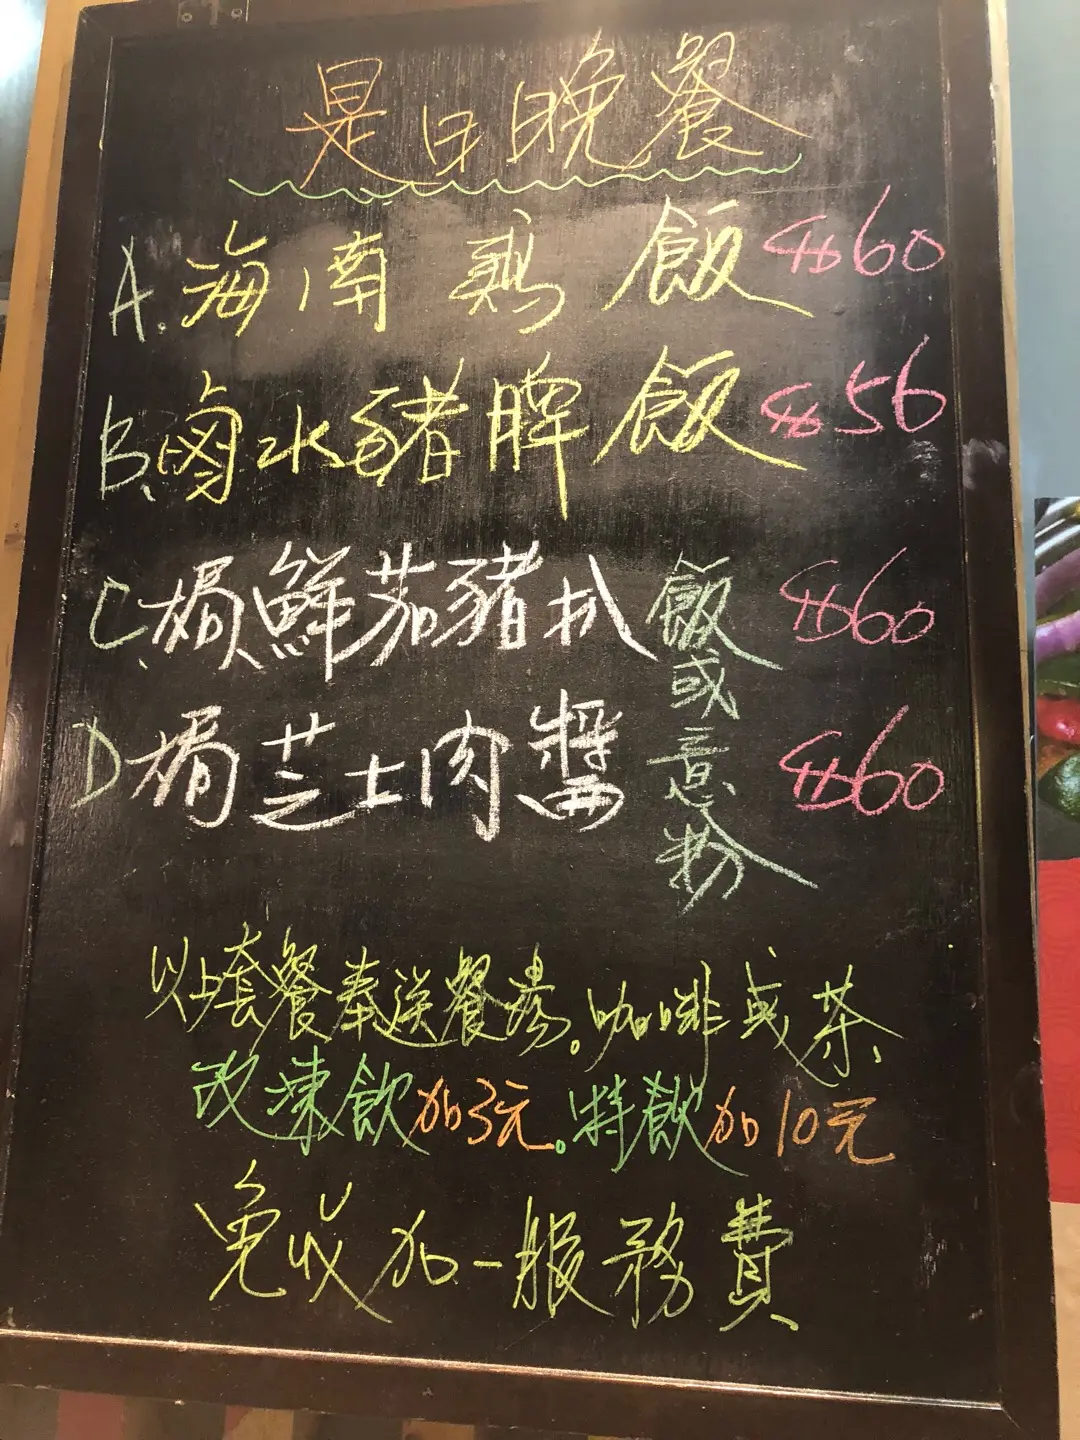 是日晚餐
A. 海南鷄飯 $60
B. 鹵水豬脾飯 $56
C. 焗鮮茄豬扒 $60
D 焗芝士肉醬 $60
飯或意粉
以上套餐奉送餐湯。咖啡或茶
改凍飲加3元。特飲加10元
免收加一服務費